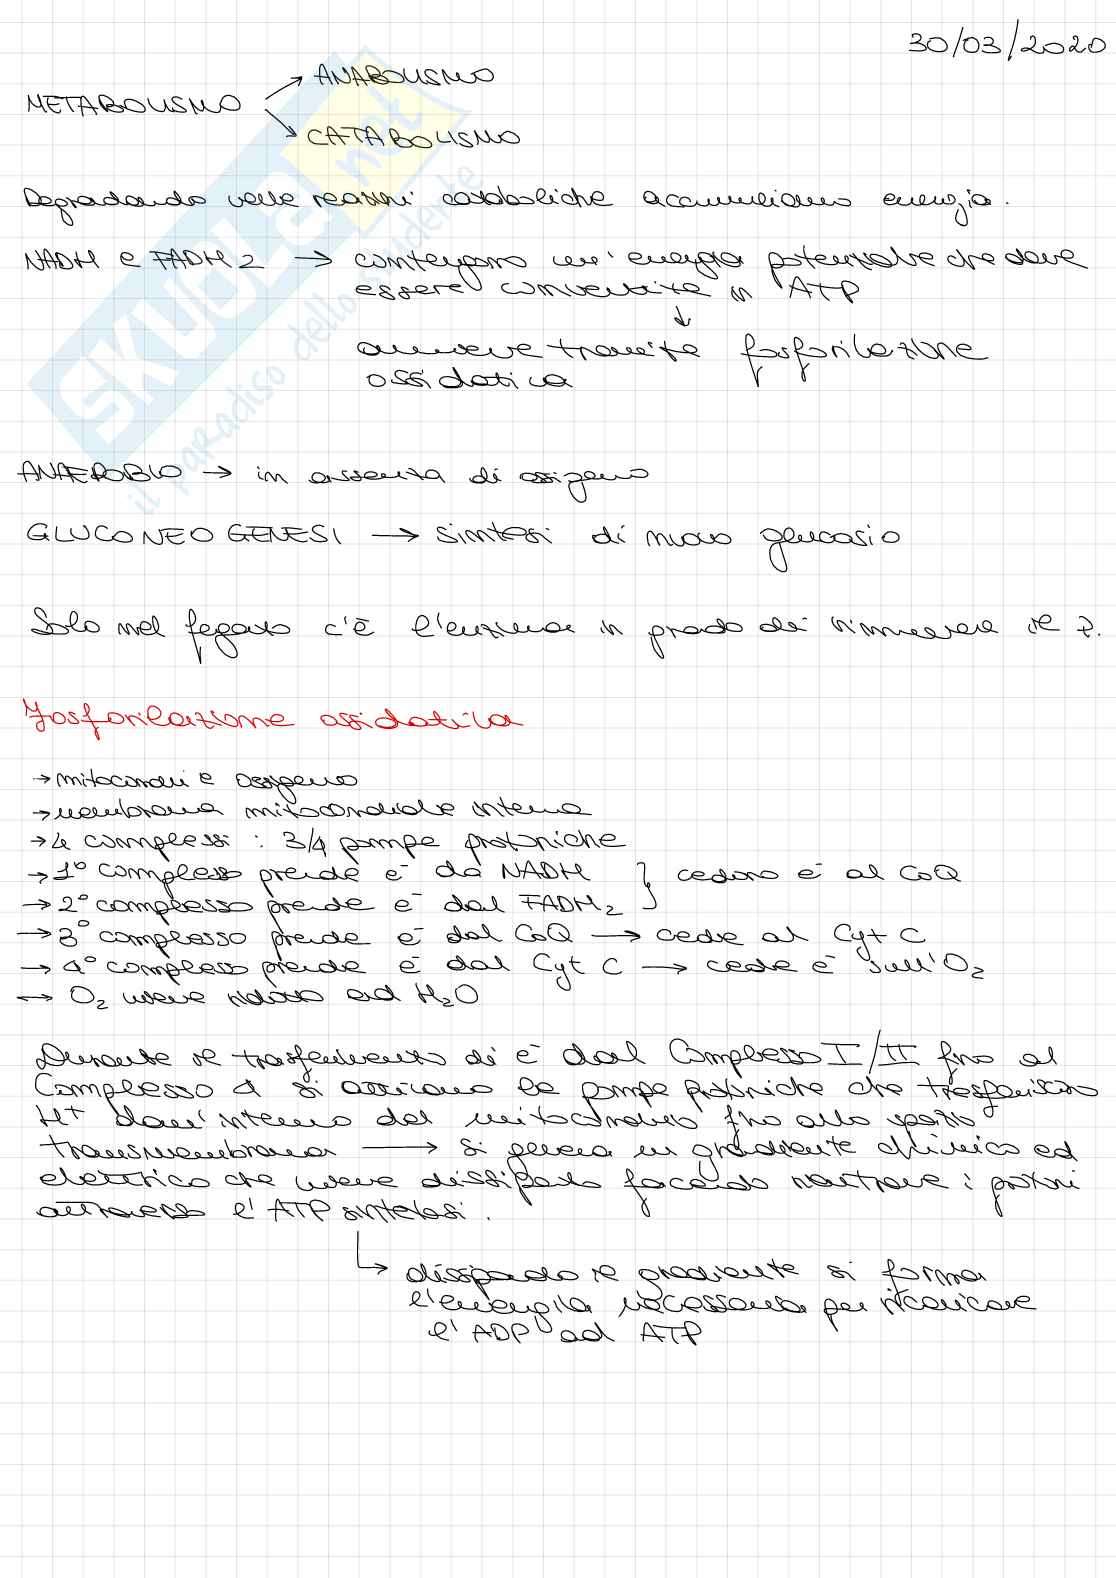 30/03/2020
ANABOLISMO
METABOLISMO
CATABOLISMO
Degradando nelle reazioni cataboliche accumuliamo energia.
NADH e FADH2 → contengono un'energia potenziale che deve
essere convertita in ATP
↓
avviene tramite fosforilazione
ossidativa
ANAEROBIO → in assenza di ossigeno
GLUCONEOGENESI → sintesi di nuovo glucosio
Solo nel fegato c'è l'enzima in grado di rimuovere il P.
Fosforilazione ossidativa
→ mitocondri e ossigeno
→ membrana mitocondriale interna
→ 4 complessi : 3/4 pompe protoniche
→ 1° complesso prende e⁻ da NADH } cedono e⁻ al CoQ
→ 2° complesso prende e⁻ dal FADH₂
→ 3° complesso prende e⁻ dal CoQ → cede al Cyt C
→ 4° complesso prende e⁻ dal Cyt C → cede e⁻ sull'O₂
→ O₂ viene ridotto ad H₂O
Durante il trasferimento di e⁻ dal Complesso I/II fino al
Complesso 4 si attivano le pompe protoniche che trasferiscono
H⁺ dall'interno del mitocondrio fino allo spazio
transmembrana → si genera un gradiente chimico ed
elettrico che viene dissipato facendo rientrare i protoni
attraverso l'ATP sintetasi.
↳ dissipando il gradiente si forma
l'energia necessaria per ricaricare
l'ADP ad ATP
SKUOLA.net
il paradiso dello studente